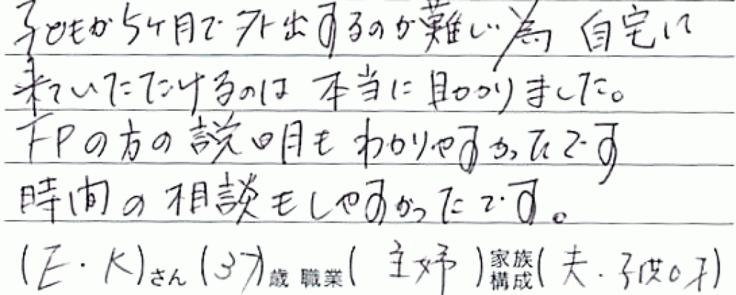 子どもが5ヶ月で外出するのが難しい為 自宅に
来ていただけるのは 本当に助かりました。
FPの方の説明もわかりやすかったです
時間の相談もしやすかったです。
(E・K)さん(37)歳 職業(主婦)家族構成(夫・子供0才)